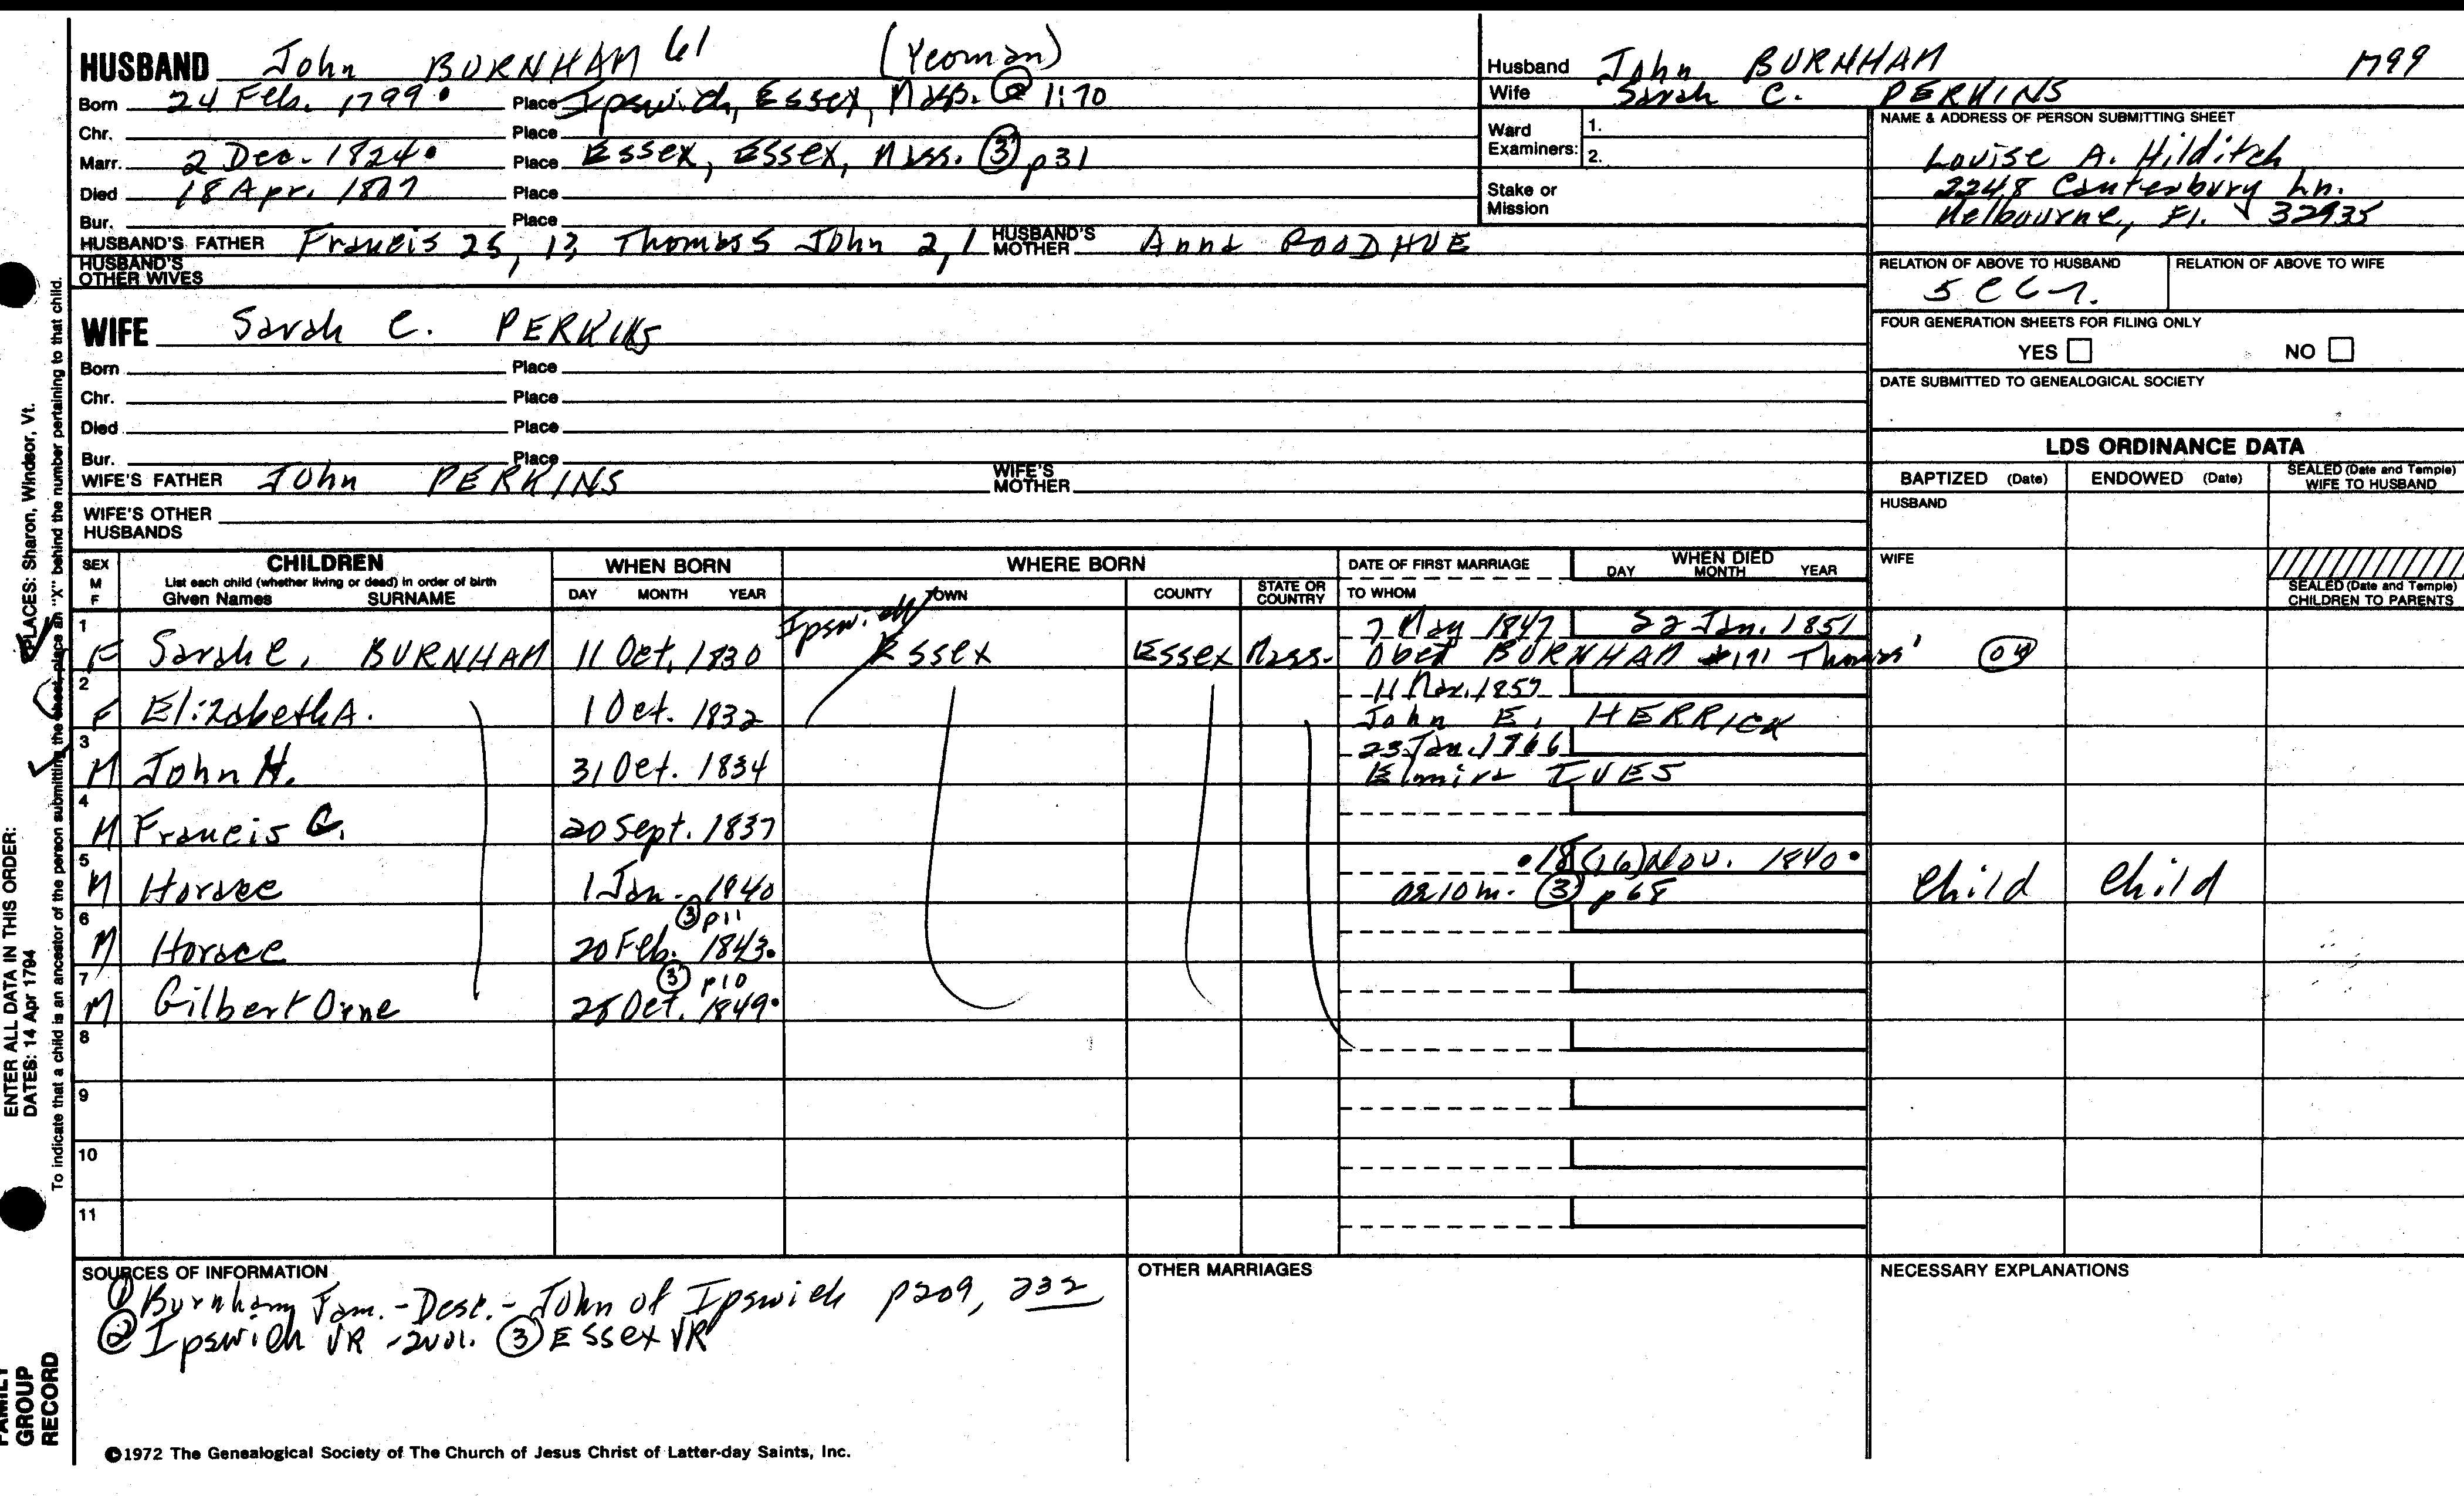 HUSBAND John BURNHAM 61 (Yeoman)
Born 24 Feb. 1799. Place Ipswich, Essex, Mass. ② 1:70
Chr. Place
Marr. 2 Dec. 1824. Place Essex, Essex, Mass. ③ p31
Died 18 Apr. 1867 Place
Bur. Place
HUSBAND'S FATHER Francis 25, 13, Thomas 5 John 2, 1 HUSBAND'S MOTHER Anna GOODHUE
HUSBAND'S OTHER WIVES
WIFE Sarah C. PERKINS
Born Place
Chr. Place
Died Place
Bur. Place
WIFE'S FATHER John PERKINS WIFE'S MOTHER
WIFE'S OTHER HUSBANDS
Husband John BURNHAM 1799
Wife Sarah C. PERKINS
Ward Examiners: 1.
2.
Stake or Mission
NAME & ADDRESS OF PERSON SUBMITTING SHEET
Louise A. Hilditch
2248 Canterbury Ln.
Melbourne, Fl. 32935
RELATION OF ABOVE TO HUSBAND RELATION OF ABOVE TO WIFE
FOUR GENERATION SHEETS FOR FILING ONLY
YES NO
DATE SUBMITTED TO GENEALOGICAL SOCIETY
LDS ORDINANCE DATA
BAPTIZED (Date) ENDOWED (Date) SEALED (Date and Temple) WIFE TO HUSBAND
HUSBAND
WIFE
SEALED (Date and Temple) CHILDREN TO PARENTS
SEX M F CHILDREN WHEN BORN WHERE BORN DATE OF FIRST MARRIAGE WHEN DIED
List each child (whether living or dead) in order of birth
Given Names SURNAME DAY MONTH YEAR TOWN COUNTY STATE OR COUNTRY TO WHOM DAY MONTH YEAR
1 Ipswich 7 May 1847 22 Jan. 1851
F Sarah C. BURNHAM 11 Oct. 1830 Essex Essex Mass. Obed BURNHAM #171 Thomas'
2 11 Nov. 1857
F Elizabeth A. 1 Oct. 1832 John E. HERRICK
3 23 Jan. 1866
M John H. 31 Oct. 1834 Elmira IVES
4
M Francis G. 20 Sept. 1837
5 .18 (16) Nov. 1840.
M Horace 1 Jan. 1840 ae 10 m. ③ p68 Child Child
6 ③ p11
M Horace 20 Feb. 1843.
7 ③ p10
M Gilbert Orne 28 Oct. 1849.
8
9
10
11
SOURCES OF INFORMATION
① Burnham Fam. - Desc. - John of Ipswich p209, 232
② Ipswich VR - 2vol. ③ Essex VR
OTHER MARRIAGES
NECESSARY EXPLANATIONS
©1972 The Genealogical Society of The Church of Jesus Christ of Latter-day Saints, Inc.
ENTER ALL DATA IN THIS ORDER:
DATES: 14 Apr 1794 PLACES: Sharon, Windsor, Vt.
To indicate that a child is an ancestor of the person submitting the sheet, place an "X" behind the number pertaining to that child.
FAMILY GROUP RECORD